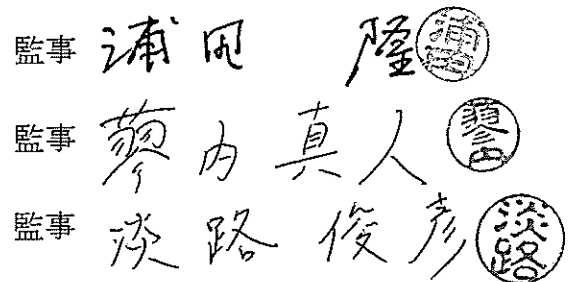 監事 浦田 隆 浦田
監事 蓼内真人 蓼内
監事 淡路 俊彦 淡路